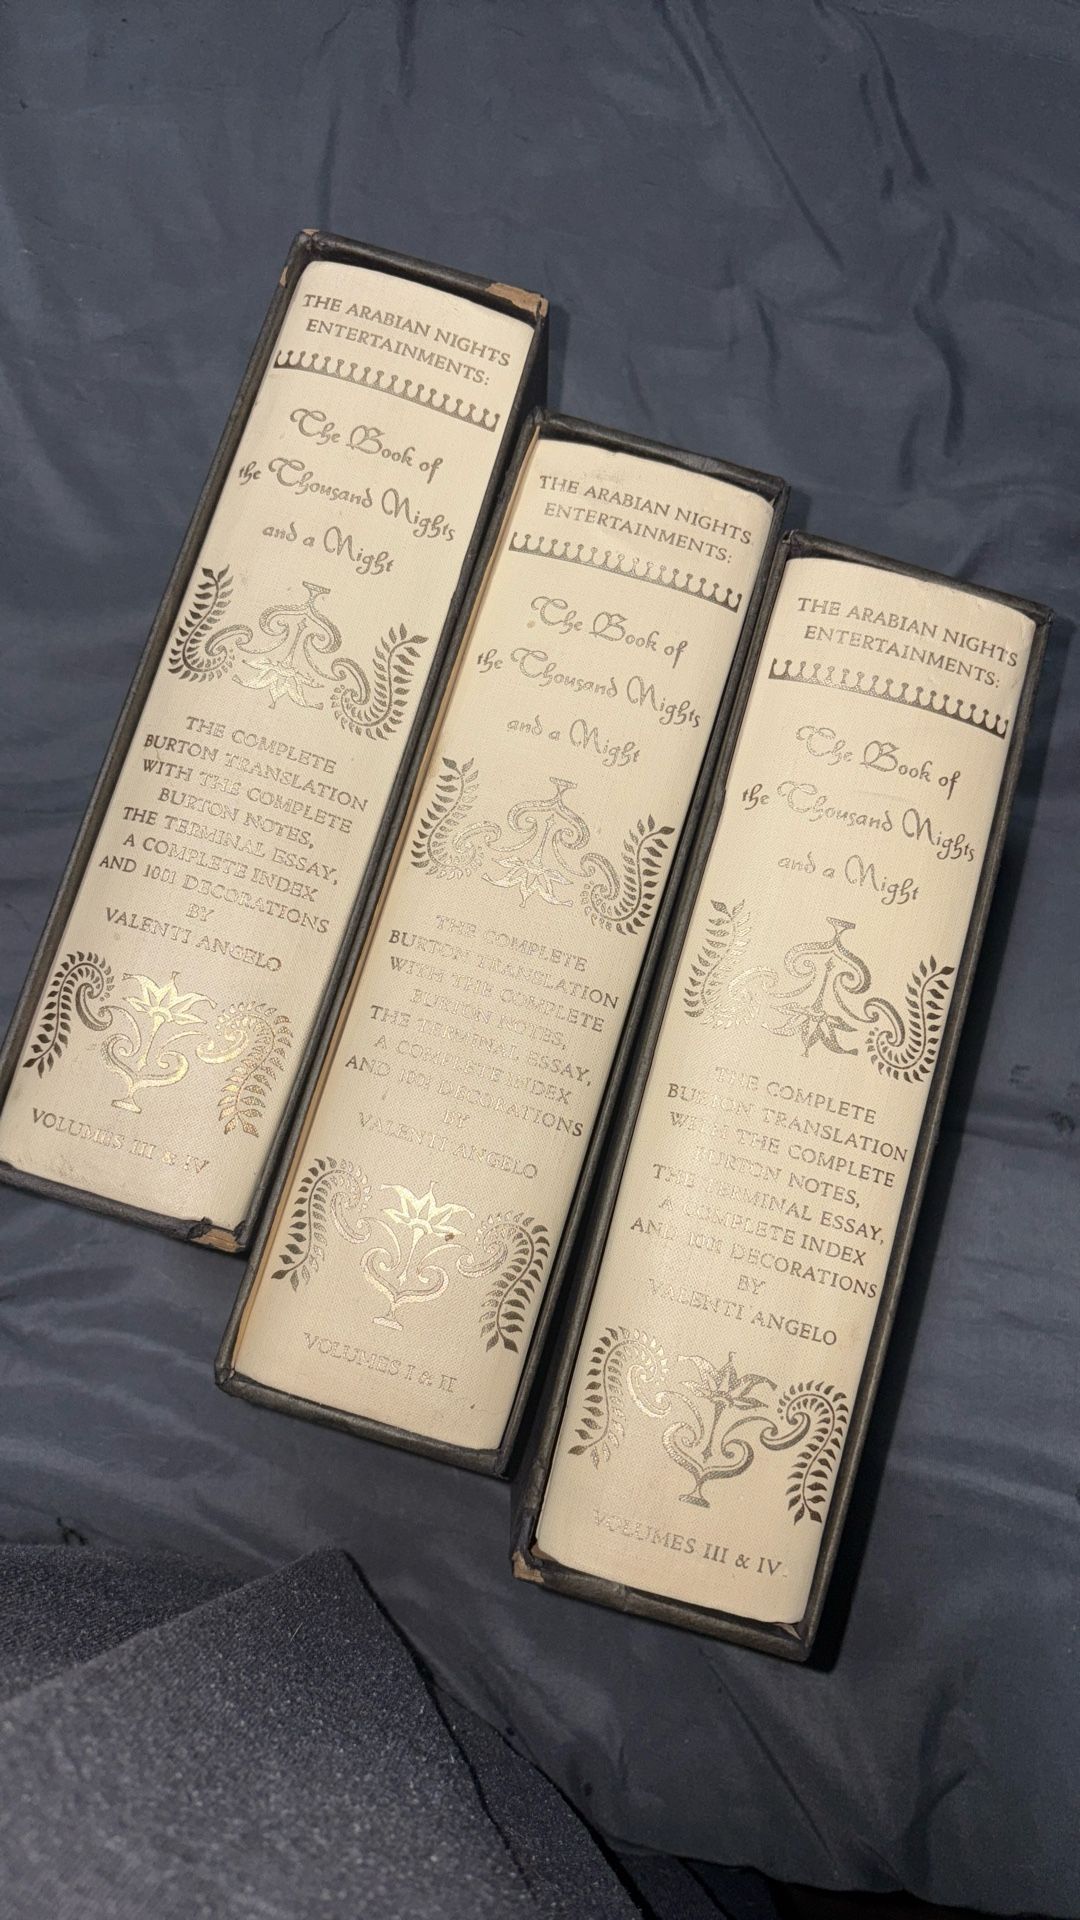 THE ARABIAN NIGHTS
ENTERTAINMENTS:
The Book of
the Thousand Nights
and a Night
THE COMPLETE
BURTON TRANSLATION
WITH THE COMPLETE
BURTON NOTES,
THE TERMINAL ESSAY,
A COMPLETE INDEX
AND 1001 DECORATIONS
BY
VALENTI ANGELO
VOLUMES III & IV
THE ARABIAN NIGHTS
ENTERTAINMENTS:
The Book of
the Thousand Nights
and a Night
THE COMPLETE
BURTON TRANSLATION
WITH THE COMPLETE
BURTON NOTES,
THE TERMINAL ESSAY,
A COMPLETE INDEX
AND 1001 DECORATIONS
BY
VALENTI ANGELO
VOLUMES I & II
THE ARABIAN NIGHTS
ENTERTAINMENTS:
The Book of
the Thousand Nights
and a Night
THE COMPLETE
BURTON TRANSLATION
WITH THE COMPLETE
BURTON NOTES,
THE TERMINAL ESSAY,
A COMPLETE INDEX
AND 1001 DECORATIONS
BY
VALENTI ANGELO
VOLUMES III & IV